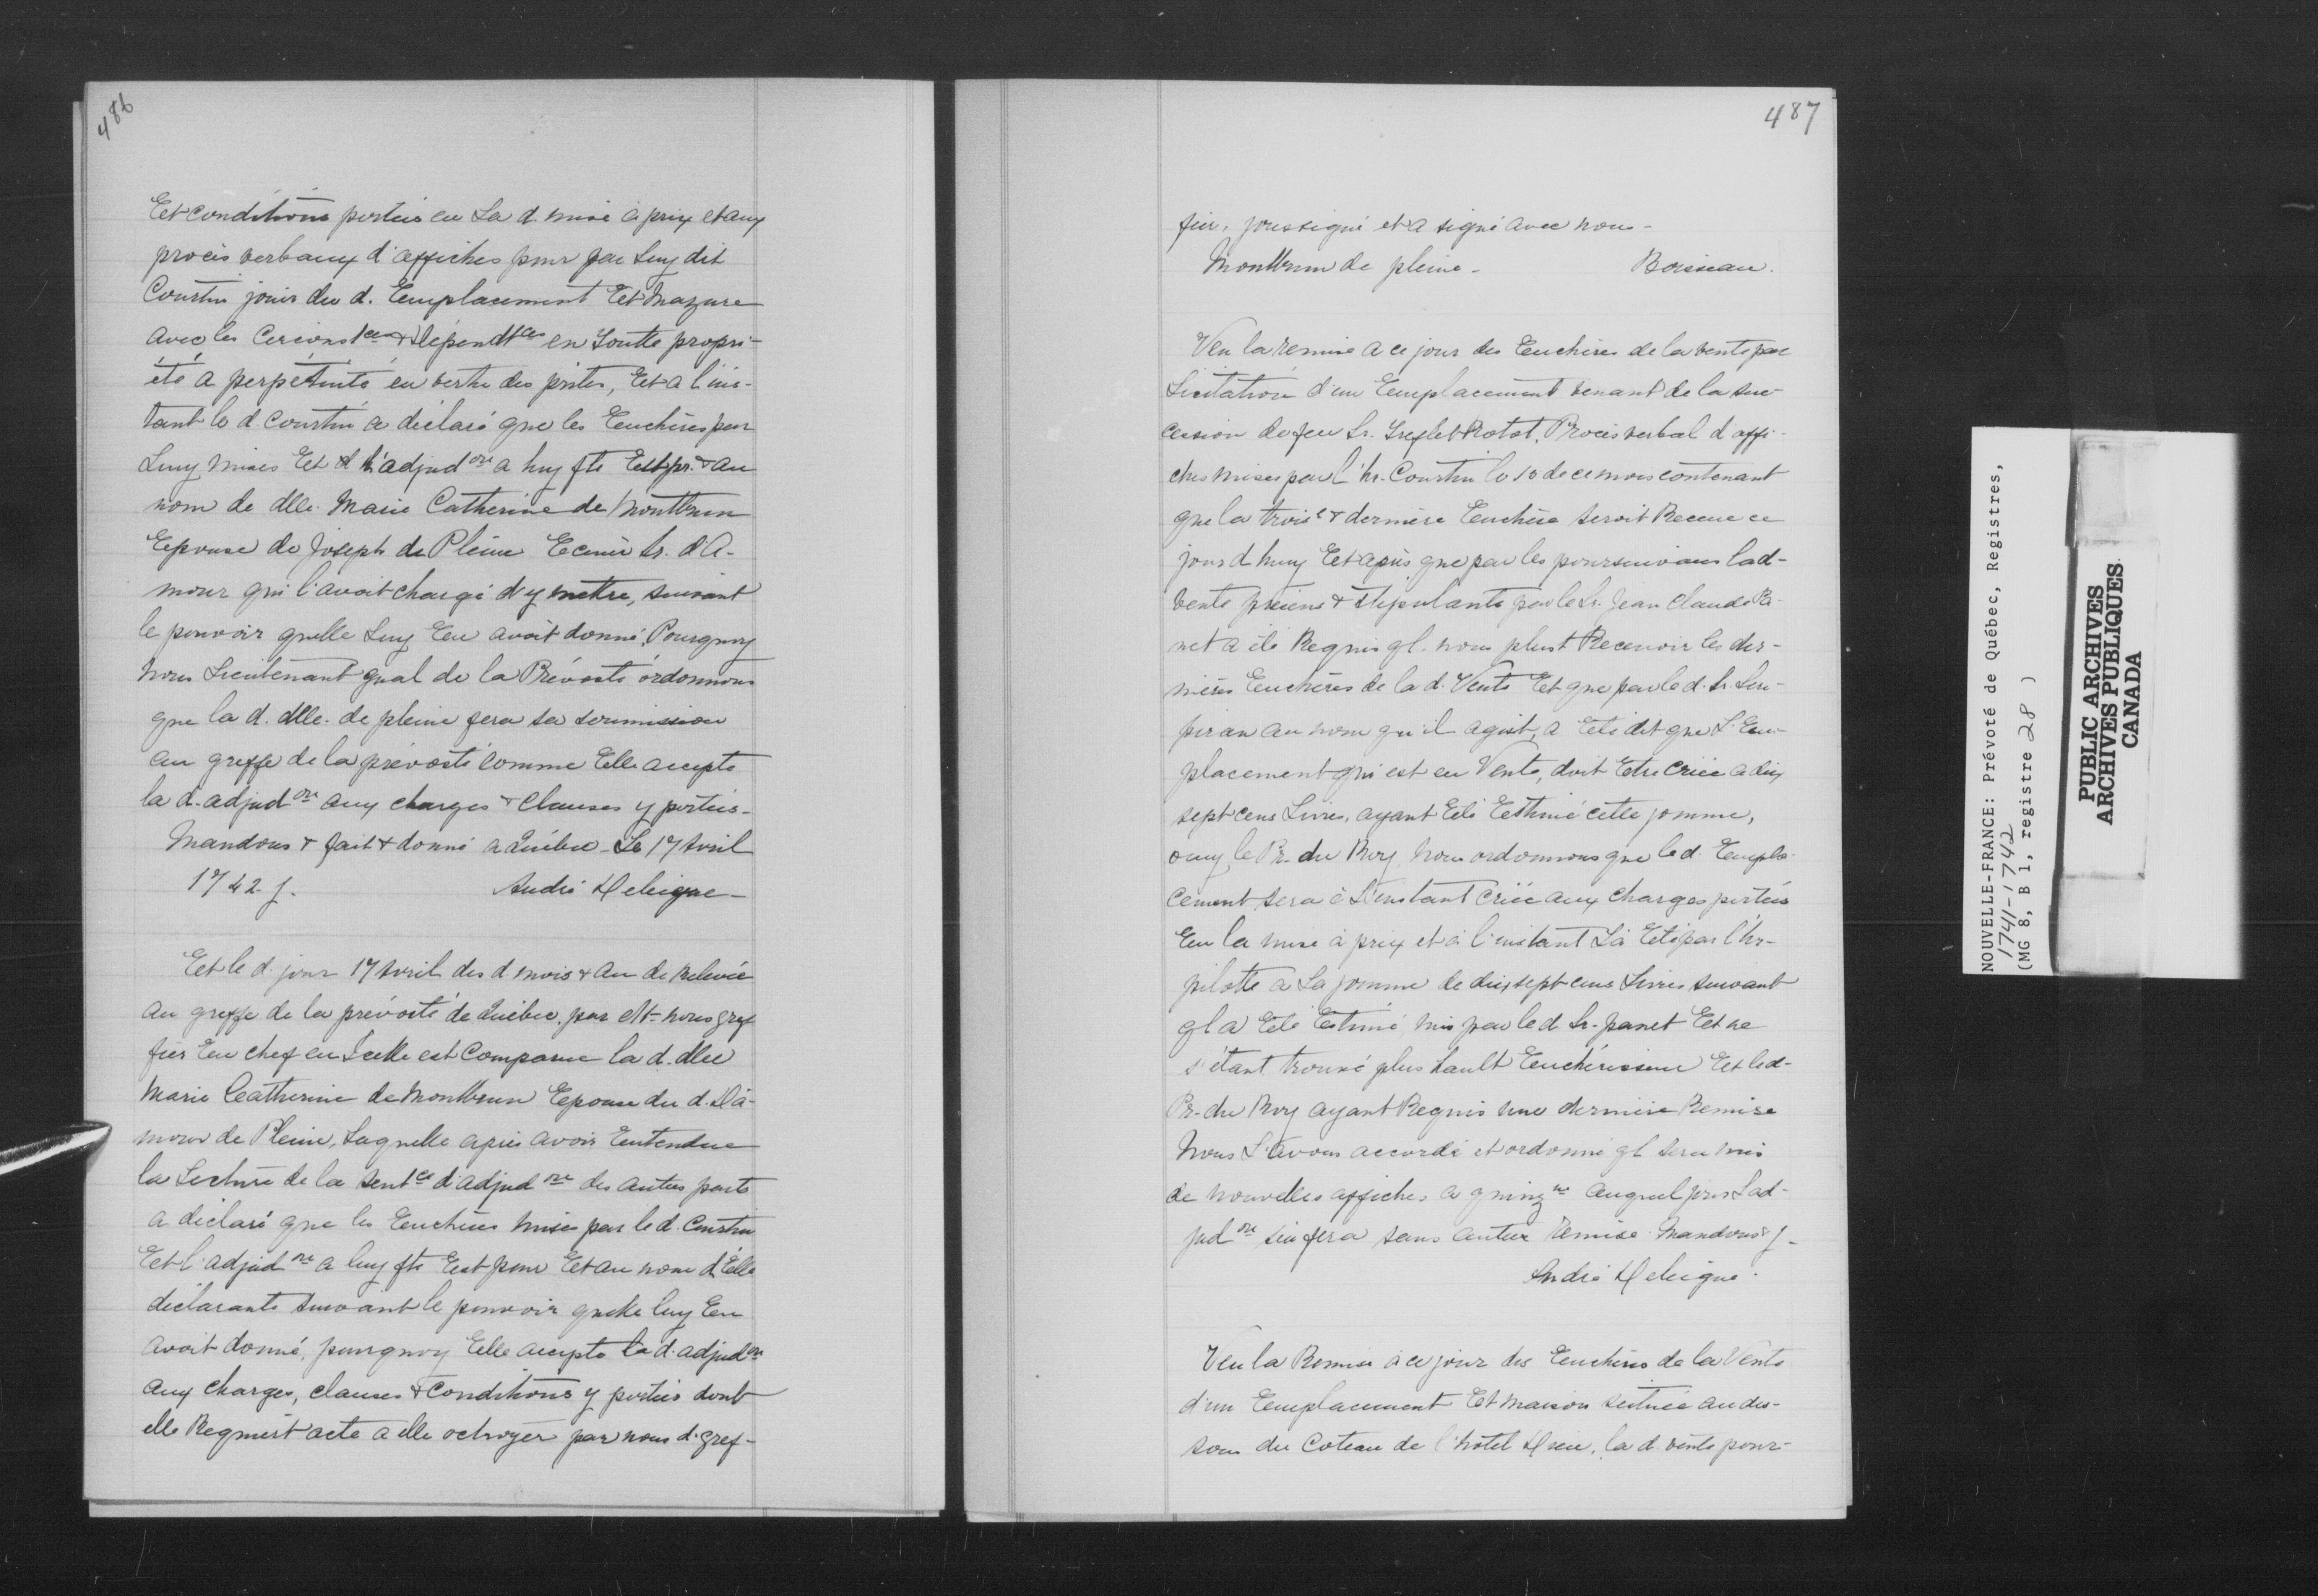 486
Et conditions portées en La d. mise à prix et aux
procès verbaux d'affiches pour par Luy dit
Courtin jouir du d. Emplacement Et Mazure
avec les Circonsces & Dépendces en Toutte propri-
été à perpétuité en vertu des prites, Et a l'ins-
tant le d. Courtin a déclaré que les Enchères par
Luy mises Et l'adjudon a luy fte Est pr. & au
nom de dlle. Marie Catherine de Montbrun
Epouse de Joseph de Pleine Ecuier Sr. d'A-
mour qui l'avoit chargé d'y mettre, suivant
le pouvoir quelle Luy En avoit donné, Pourquoy
Nous Lieutenant gnal de la Prévosté ordonnons
que la d. dlle. de pleine fera sa soumission
au greffe de la prévosté comme Elle accepte
la d. adjudon aux charges & Clauses y portées-
Mandons & fait & donné a Québec - Le 17 Avril
1742 f. André Deleigne-
Et le d. jour 17 Avril des d. mois & an de Relevée
au greffe de la prévosté de Québec, par dt. nous gref
fier En chef en Icelle est Comparue la d. dlle
Marie Catherine de Montbrun Epouse du d. D'a-
mour de Pleine, Laquelle après avoir Entendue
la Lecture de la Sentce d'adjudon des autres parts
a déclaré que les Enchères mises par le d. Courtin
Et l'adjudon a luy fte Est pour Et au nom d'Elle
déclarante suivant le pouvoir quelle luy En
avoit donné, pourquoy Elle accepte la d. adjudon
aux charges, clauses & Conditions y portées dont
elle Requiert acte a elle octroyer par nous d. gref-
487
fier, soussigné et a signé avec nous-
Montbrun de pleine- Boisseau.
Veu la remise a ce jour des Enchères de la vente par
Licitation d'un Emplacement venant de la suc-
cession de feu Sr. Trefflet Rotot, Procès verbal d'affi-
ches mises par l'hr. Courtin le 10 de ce mois contenant
que la troise & dernière Enchère seroit Receue ce
jour d'huy Et après que par les poursuivans lad-
vente présens & stipulants par le Sr. Jean Claude Pa-
net a été Requis ql. nous plust Recevoir les der-
nières Enchères de la d. Vente Et que par le d. Sr.
au nom qu'il agist, a Eté dit que L'Em-
placement qui est en Vente, doit Etre Criée a dix
sept cens Livres, ayant Eté Estimé cette somme,
ouy le Pr. du Roy Nous ordonnons que le d. Empla-
cement sera à L'instant Criée aux charges portées
En la mise à prix et à l'instant L'a Eté par l'hr-
pilotte a La somme de dix sept cens Livres suivant
ql a Eté Estimé, mis par le d Sr. panet Et ne
s'étant trouvé plus hault Enchérisseur Et led-
Pr. du Roy ayant Requis une dernière Remise
Nous L'avons accordé et ordonné ql sera mis
de nouvelles affiches a quinzne auquel jour Lad-
judon s'en fera sans autre remise Mandons & f-
André Deleigne.
Veu la Remise à ce jour des Enchères de la Vente
d'un Emplacement Et maison scituée au des-
sous du Coteau de l'hotel Dieu, la d. vente pour-
NOUVELLE-FRANCE: Prévoté de Québec, Registres,
1741-1742
(MG 8, B 1, registre 28 )
PUBLIC ARCHIVES
ARCHIVES PUBLIQUES
CANADA